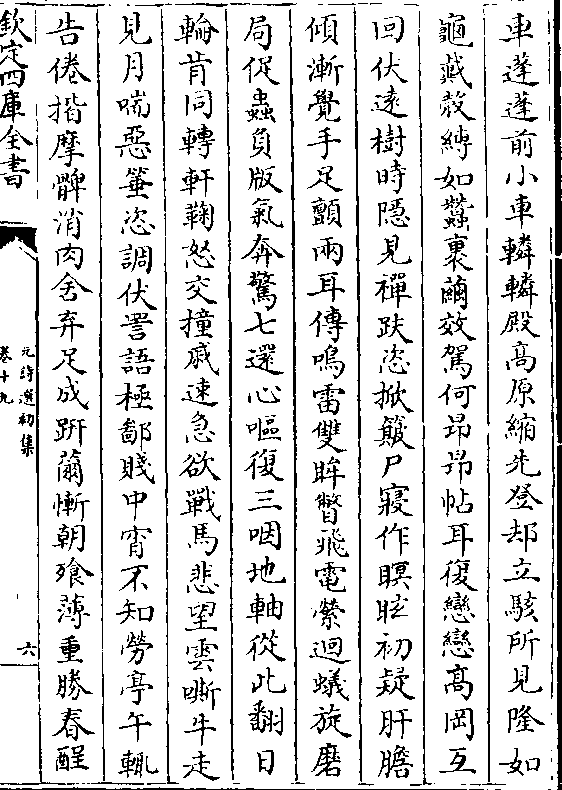 車蓬蓬前小車轔轔殿高原縮先登却立駭所見隆如
龜戴殼縳如蠶裹繭效駕何昻昻帖耳復戀戀高岡互
回伏逺樹時隱見襌趺恣掀簸尸寢作瞑眩初疑肝膽
傾漸覺手足顫兩耳傳鳴雷雙眸瞥飛電縈迴蟻旋磨
局促蟲負版氣奔驚七還心嘔復三咽地軸從此翻日
輪肯同轉軒鞠怒交撞戚速急欲戰馬悲望雲嘶牛走
見月喘惡箠恣調伏詈語極鄙賤中宵不知勞亭午輒
告倦揩摩髀消肉舍弃足成趼薾慚朝飱薄重勝春酲
欽定四庫全書
元詩選初集
卷十九
六